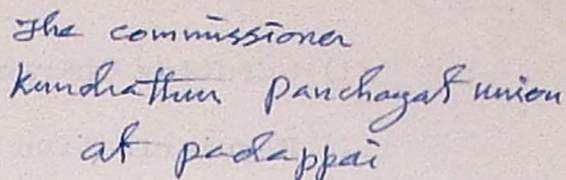 The commissioner
Kundrathur Panchayat union
at padappai